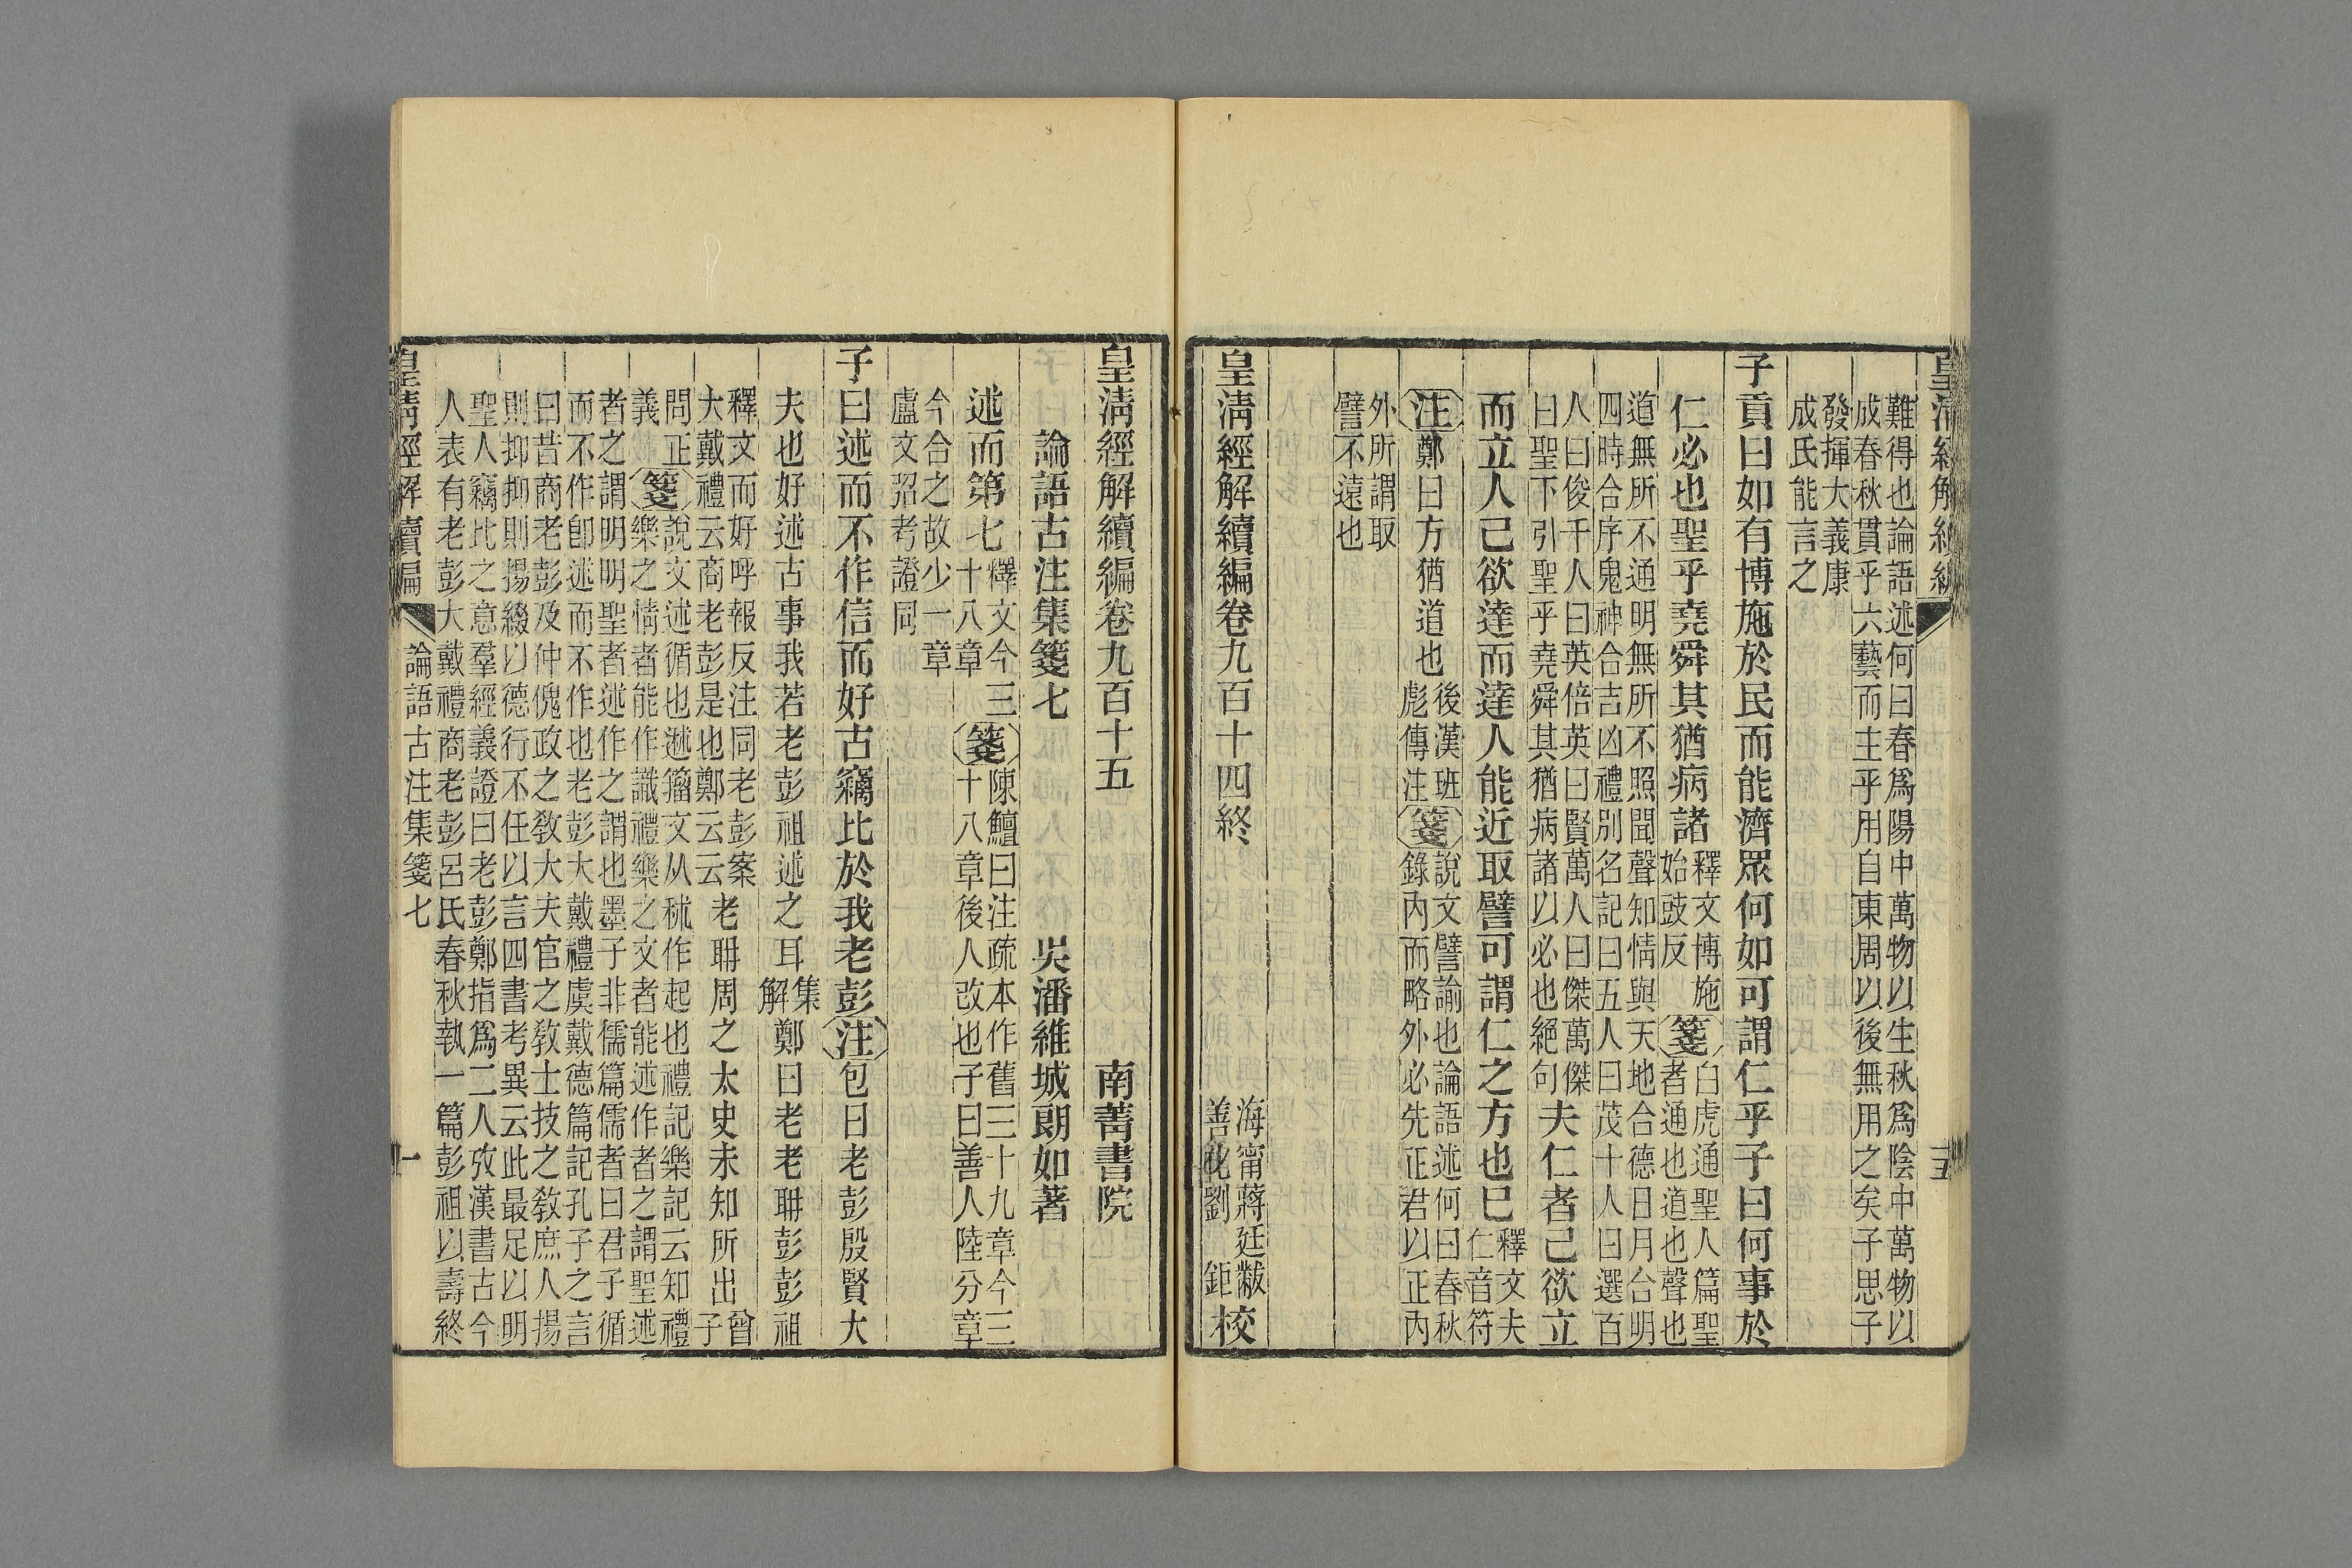 皇清經解續編 十五
難得也論語述何曰春爲陽中萬物以生秋爲陰中萬物以
成春秋貫乎六藝而主乎用自東周以後無用之矣子思子
發揮大義康
成氏能言之
子貢曰如有博施於民而能濟眾何如可謂仁乎子曰何事於
仁必也聖乎堯舜其猶病諸釋文博施始豉反箋白虎通聖人篇聖者通也道也聲也
道無所不通明無所不照聞聲知情與天地合德日月合明
四時合序鬼神合吉凶禮別名記曰五人曰茂十人曰選百
人曰俊千人曰英倍英曰賢萬人曰傑萬傑曰聖下引聖乎堯舜其猶病諸以必也絕句夫仁者己欲立
而立人己欲達而達人能近取譬可謂仁之方也已釋文夫仁音符
注鄭曰方猶道也後漢班彪傳注箋說文譬諭也論語述何曰春秋錄內而略外必先正君以正內
外所謂取
譬不遠也
皇清經解續編卷九百十四終 海甯蔣廷黻善化劉鉅校
皇清經解續編卷九百十五 南菁書院
論語古注集箋七 吳潘維城朗如著
述而第七釋文今三十八章箋陳鱣曰注疏本作舊三十九章今三十八章後人改也子曰善人陸分章
今合之故少一章
盧文弨考證同
子曰述而不作信而好古竊比於我老彭注包曰老彭殷賢大
夫也好述古事我若老彭祖述之耳集解鄭曰老老聃彭彭祖
釋文而好呼報反注同老彭案大戴禮云商老彭是也鄭云云老聃周之太史未知所出曾子
問正義箋說文述循也𨔶籀文从秫作起也禮記樂記云知禮樂之情者能作識禮樂之文者能述作者之謂聖述
者之謂明明聖者述作之謂也墨子非儒篇儒者曰君子循
而不作卽述而不作也老彭大戴禮虞戴德篇記孔子之言
曰昔商老彭及仲傀政之敎大夫官之敎士技之敎庶人揚
則抑抑則揚綴以德行不任以言四書考異云此最足以明
聖人竊比之意羣經義證曰老彭鄭指爲二人攷漢書古今
人表有老彭大戴禮商老彭呂氏春秋執一篇彭祖以壽終
皇清經解續編 論語古注集箋七 一